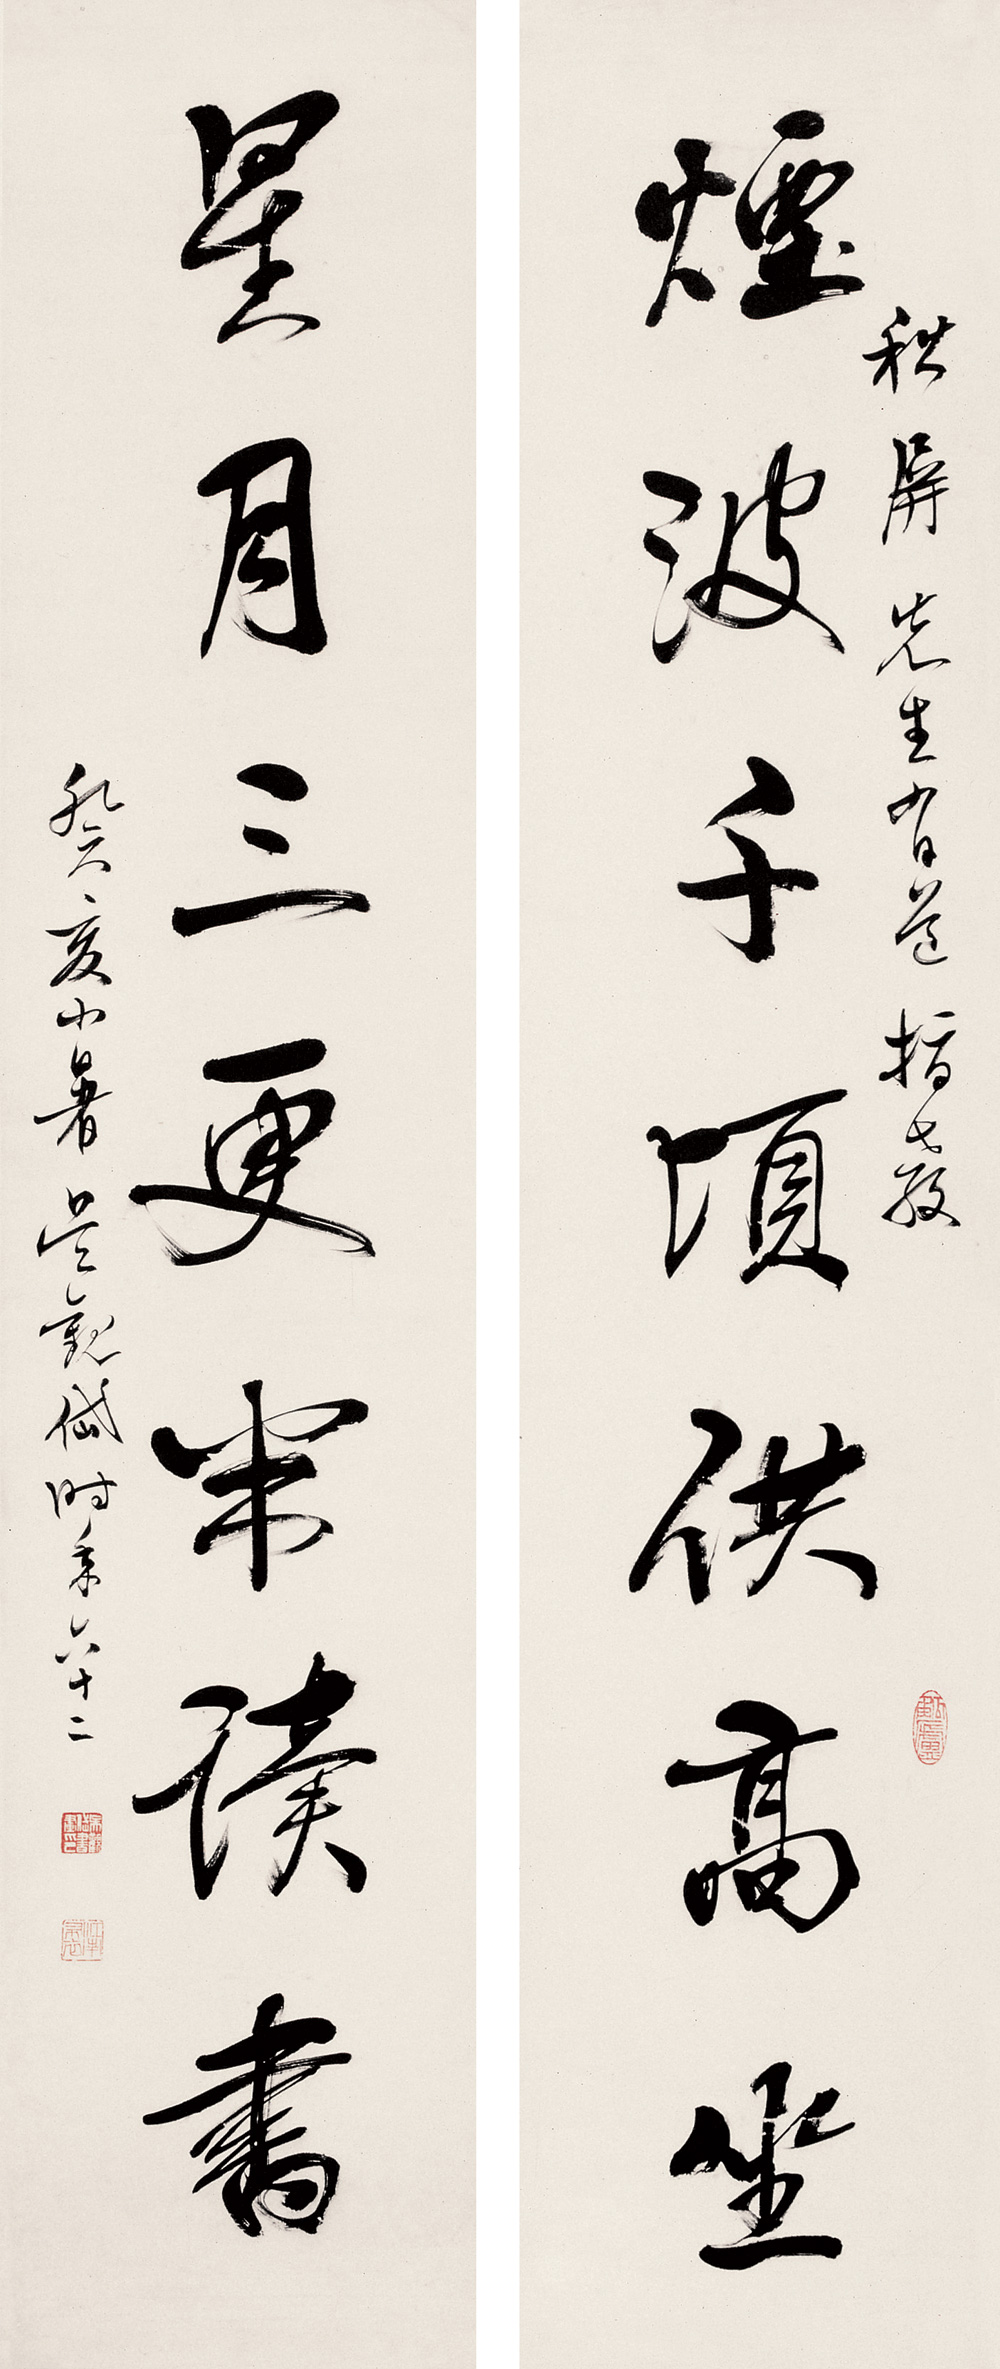 秋屏先生有道指教
煙波千頃供高坐
星月三更半讀書
癸亥小暑吳觀岱時年六十二